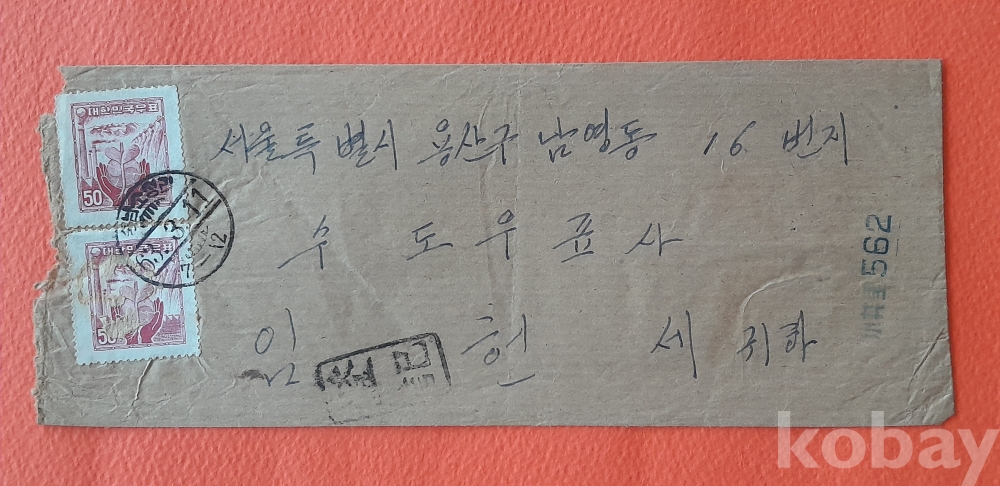 대한민국우표
50
대한민국우표
50
서울특별시 용산구 남영동 16 번지
수도우표사
임헌세 귀하
562
kobay